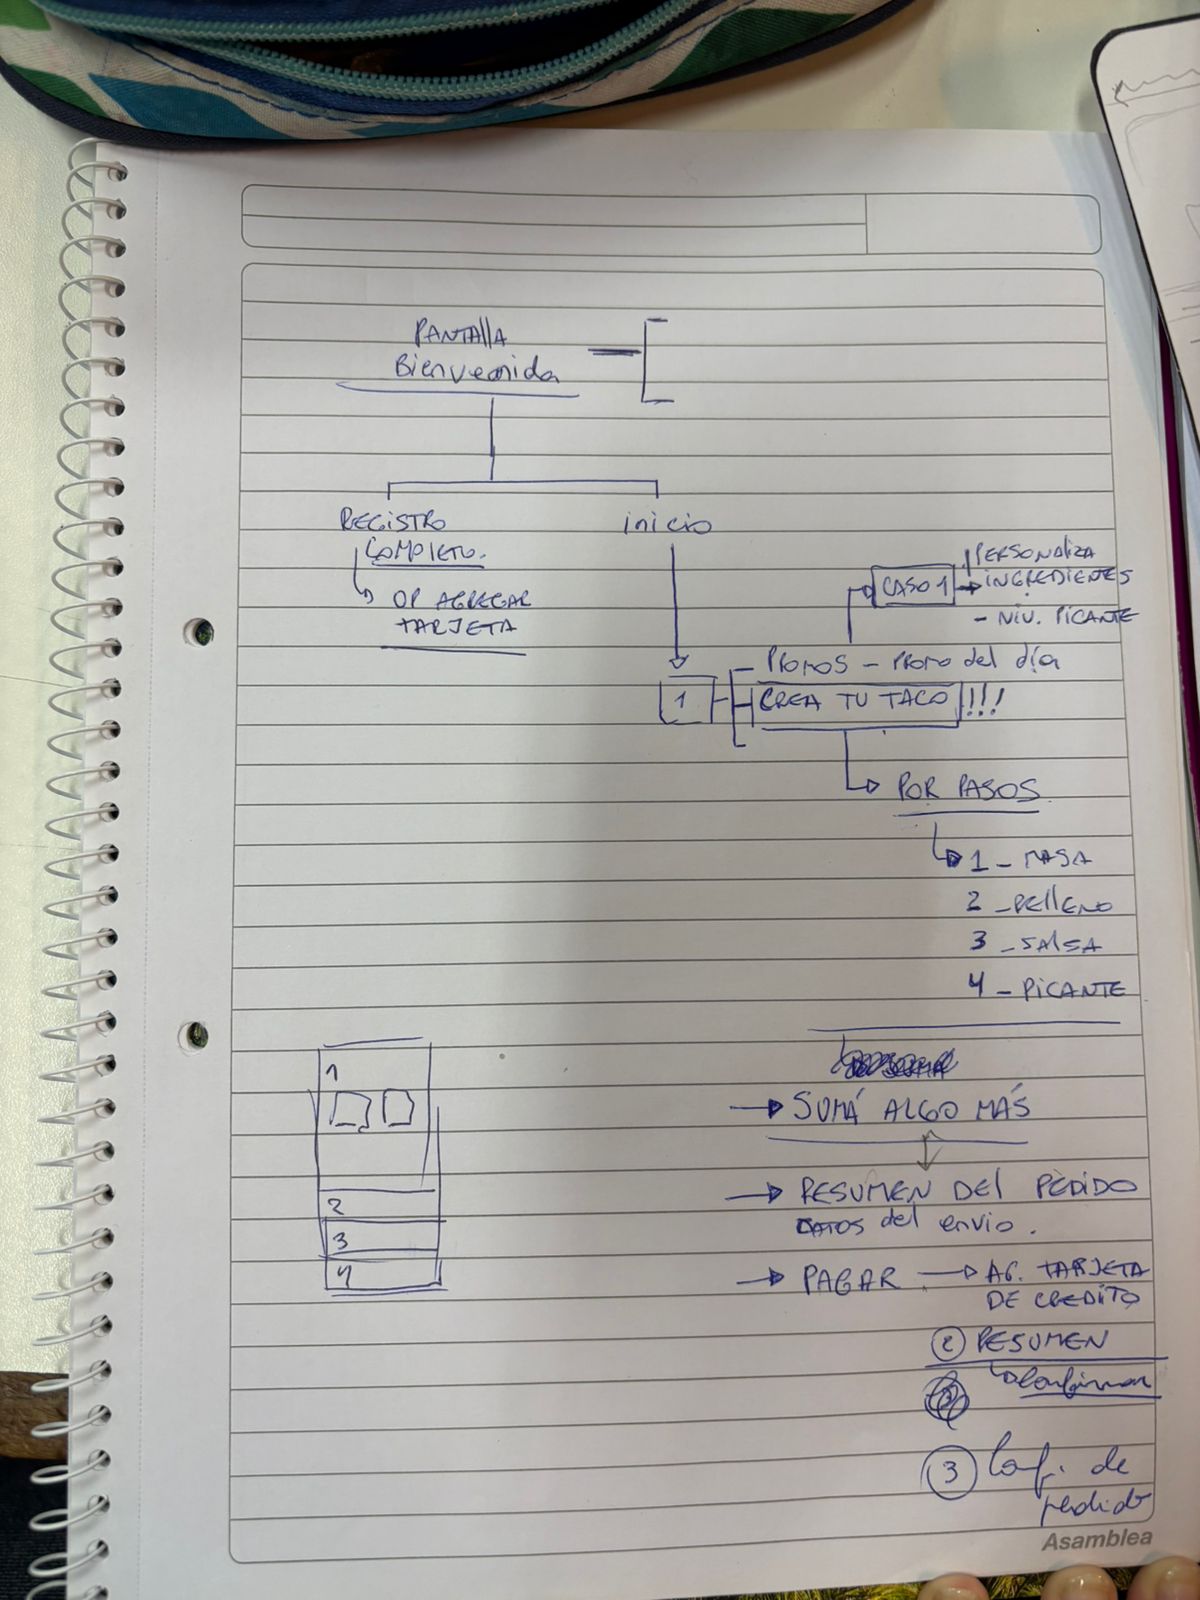 PANTAllA
Bienvenida
REGISTRO
COMPLETO.
OP AGREGAR
TARJETA
inicio
CASO 1
PERSONALIZA
INGREDIENTES
- NIV. PICANTE
1
- PROMOS - PROMO del día
CREA TU TACO !!!
POR PASOS
1 - MASA
2 - RELLENO
3 - SALSA
4 - PICANTE
1
2
3
4
SUMÁ ALGO MÁS
RESUMEN DEL PEDIDO
DATOS del envio.
PAGAR → AG. TARJETA
DE CREDITO
2 RESUMEN
Confirmar
3 Conf. de
pedido
Asamblea